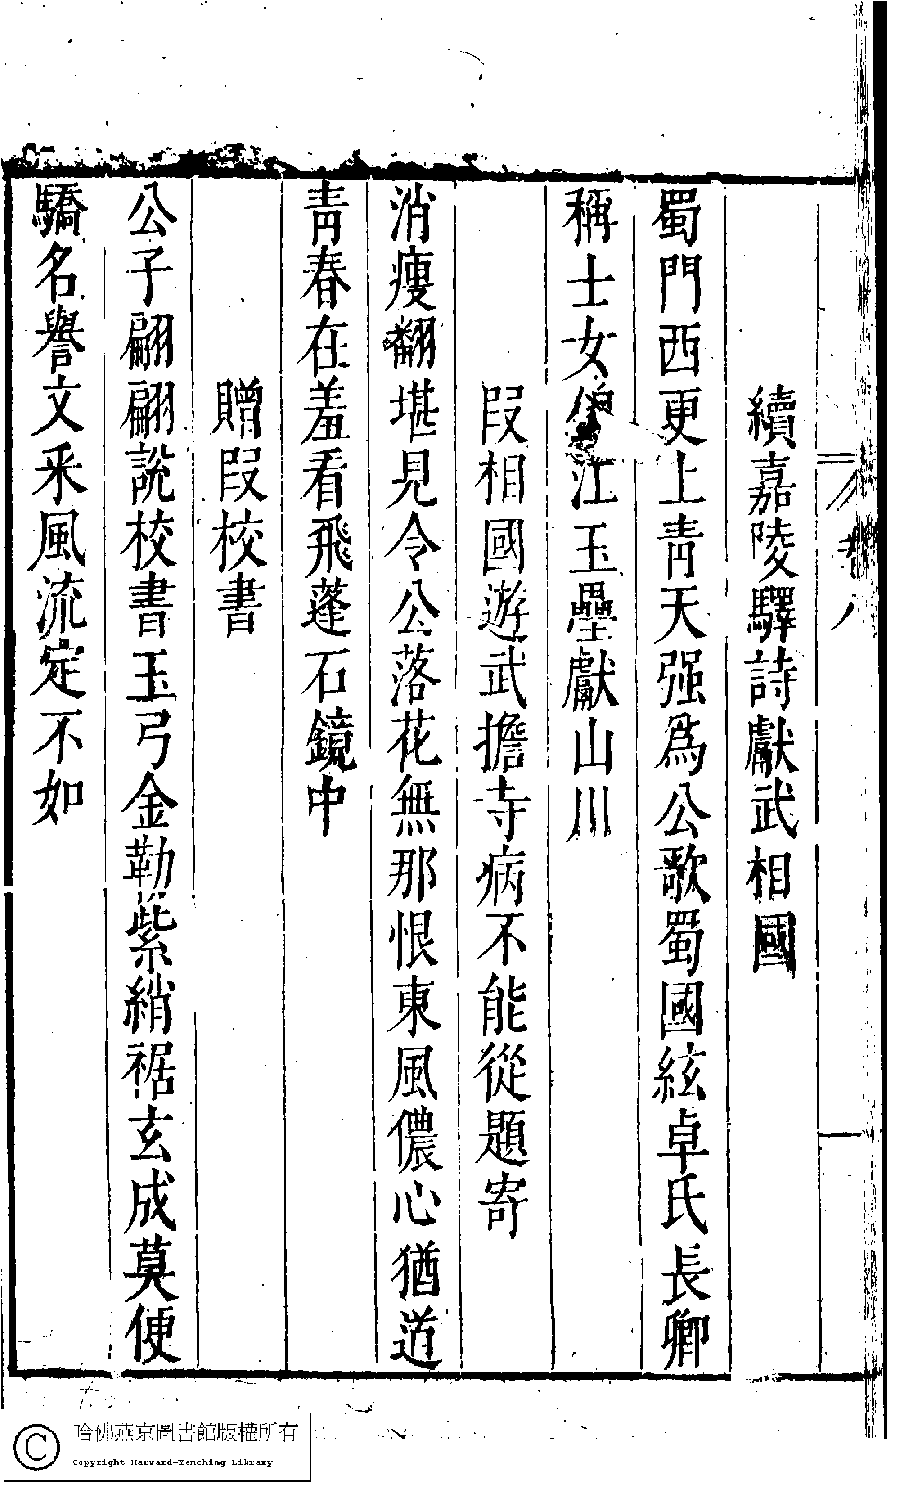 續嘉陵驛詩獻武相國
蜀門西更上青天强爲公歌蜀國絃卓氏長卿
稱士女錦江玉壘獻山川
段相國遊武擔寺病不能從題寄
消瘦翻堪見令公落花無那恨東風儂心猶道
青春在羞看飛蓬石鏡中
贈段校書
公子翩翩說校書玉弓金勒紫綃裾玄成莫便
驕名譽文采風流定不如
卷八
哈佛燕京圖書館版權所有
Copyright Harvard-Yenching Library